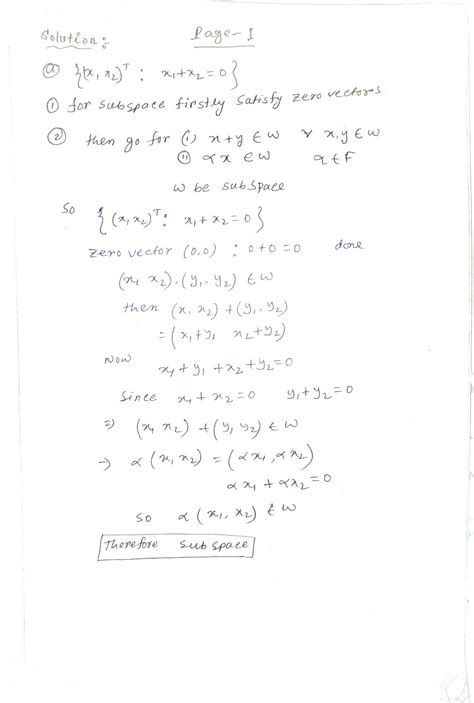 Solution:- Page-1
(a) {(x, x2)ᵀ : x1+x2=0}
(1) for subspace firstly satisfy zero vectors
(2) then go for (i) x+y ∈ w ∀ x,y ∈ w
(ii) αx ∈ w α ∈ F
w be subspace
So {(x1 x2)ᵀ: x1+x2=0}
zero vector (0,0) : 0+0=0 done
(x1 x2).(y1. y2) ∈ w
then (x1 x2)+(y1. y2)
=(x1+y1 x2+y2)
Now x1+y1+x2+y2=0
Since x1+x2=0 y1+y2=0
⇒ (x1 x2)+(y1 y2) ∈ w
→ α(x1, x2) = (αx1, αx2)
αx1+αx2=0
so α(x1, x2) ∈ w
Therefore subspace